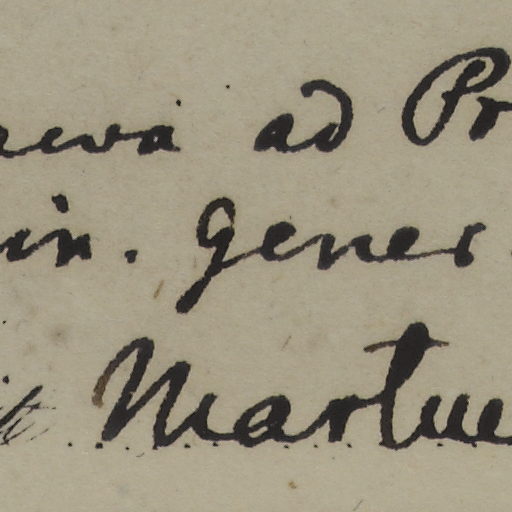 aeva ad Pr
in. gener.
Martue